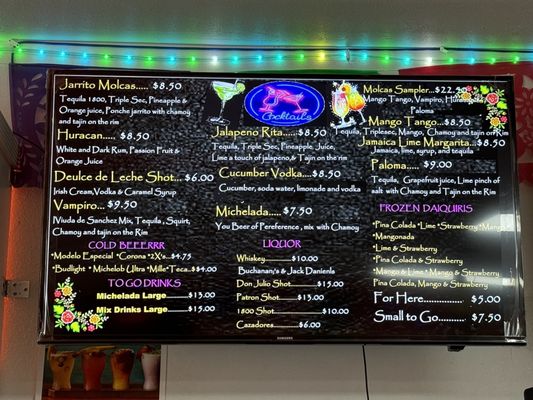 Jarrito Molcas..... $8.50
Tequila 1800, Triple Sec, Pineapple &
Orange juice, Ponche jarrito with chamoy
and tajin on the rim
Huracan..... $8.50
White and Dark Rum, Passion Fruit &
Orange Juice
Deulce de Leche Shot... $6.00
Irish Cream,Vodka & Caramel Syrup
Vampiro... $9.50
Viuda de Sanchez Mix, Tequila , Squirt,
Chamoy and tajin on the rim
COLD BEEERRR
*Modelo Especial *Corona *2X's...$4.75
*Budlight * Michelob Ultra *Miller*Teca...$4.00
TO GO DRINKS
Michelada Large...............$13.00
Mix Drinks Large...............$15.00
Cocktails
Jalapeño Rita............$8.50
Tequila, Triple Sec, Pineapple, Juice,
Lime a touch of jalapeno,& Tajin on the rim
Cucumber Vodka....$8.50
Cucumber, soda water, limonade and vodka
Michelada.....$7.50
You Beer of Pereference , mix with Chamoy
LIQUOR
Whiskey...............$10.00
Buchanan's & Jack Danienls
Don Julio Shot...............$15.00
Patron Shot...............$13.00
1800 Shot...............$10.00
Cazadores...............$6.00
Molcas Sampler...$22.50
Mango Tango, Vampiro, Huracan &
Paloma
Mango Tango...$8.50
Tequila, Triplesec, Mango, Chamoy and tajin on Rim
Jamaica Lime Margarita...$8.50
Jamaica, lime, syrup, and tequila
Paloma..... $9.00
Tequila, Grapefruit juice, Lime pinch of
salt with Chamoy and Tajin on the Rim
FROZEN DAIQUIRIS
*Pina Colada *Lime *Strawberry *Mango
*Mangonada
*Lime & Strawberry
*Pina Colada & Strawberry
*Mango & Lime *Mango & Strawberry
Pina Colada, Mango & Strawberry
For Here............... $5.00
Small to Go............ $7.50
SAMSUNG